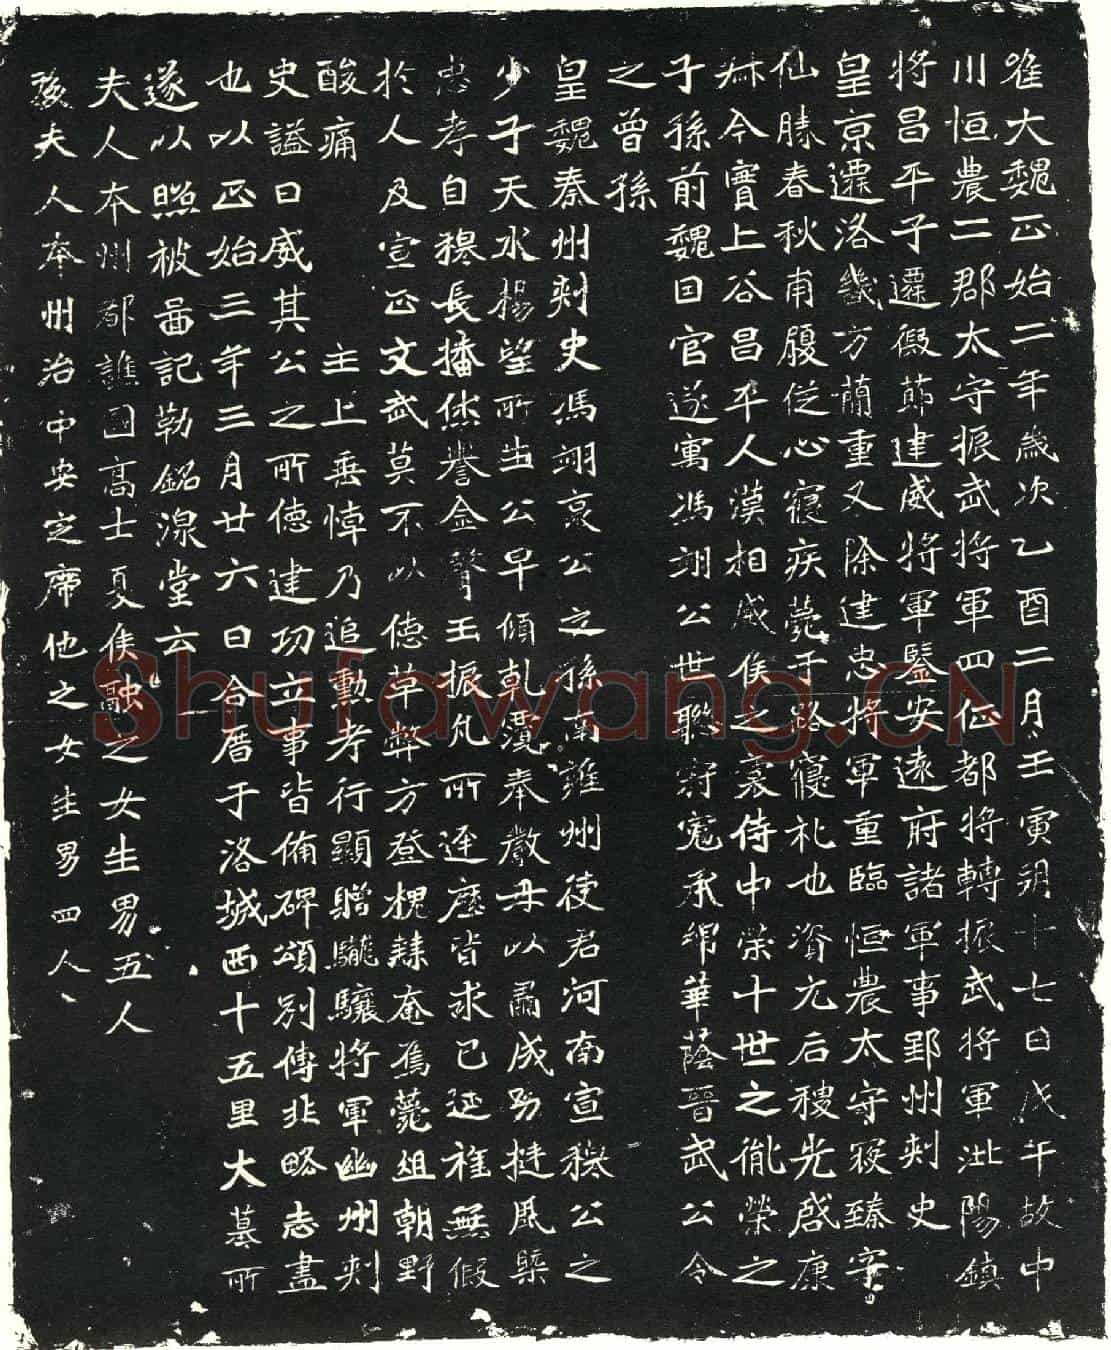 唯大魏正始二年歲次乙酉二月壬寅朔十七日戊午故中
川恒農二郡太守振武將軍四征都將轉振武將軍沘陽鎮
將昌平子遷假節建威將軍鑒安遠府諸軍事郢州刺史
皇京遷洛畿方蕑重又除建忠將軍重臨恒農太守寢臻寧
仙勝春秋甫履從心寢疾薨于路寢礼也資元后稷先啓康
叔今實上谷昌平人漢相威侯之裔侍中榮十世之胤榮之
子孫前魏因官遂寓馮翊公世聯冠冕承綿華蔭晉武公令
之曾孫
皇魏秦州刺史馮翊哀公之孫南雍州使君河南宣穆公之
少子天水楊望所生公早傾乾蔭奉嚴母以肅成幼挺風槩
忠孝自穆長播休譽金聲玉振凡所逕歷皆求己延種無假
於人及宣正文武莫不以 德草弊方登槐棘奄焉薨徂朝野
酸痛 主上垂悼乃追勳考行顯贈驪驤將軍幽州刺
史諡曰威其公之所德建功立事皆備碑頌別傳非略志盡
也以正始三年三月廿六日合厝于洛城西十五里大墓所
遂以照被圖記勒銘湶堂云
夫人本州都譙國高士夏侯融之女生男五人
後夫人本州治中安定席他之女生男四人
Shufawang.CN